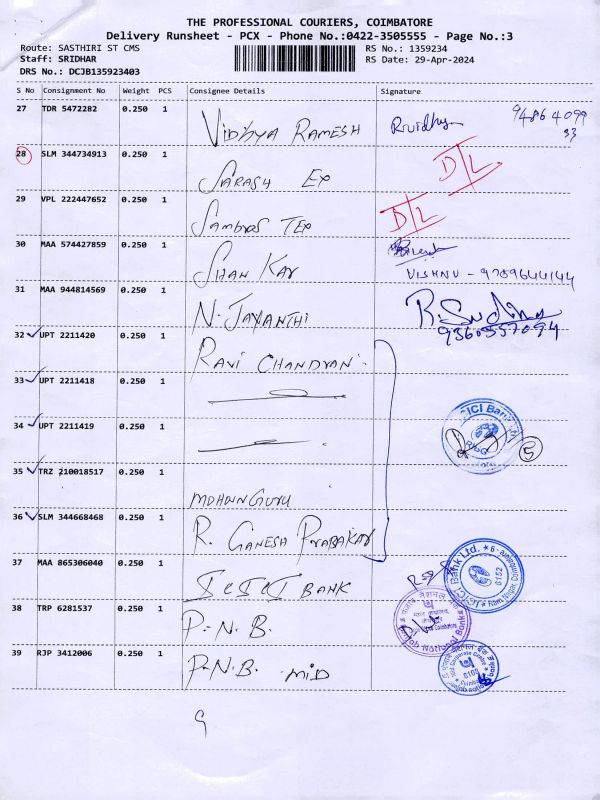 THE PROFESSIONAL COURIERS, COIMBATORE
Delivery Runsheet - PCX - Phone No.:0422-3505555 - Page No.:3
Route: SASTHIRI ST CMS RS No.: 1359234
Staff: SRIDHAR RS Date: 29-Apr-2024
DRS No.: DCJB135923403
S No Consignment No Weight PCS Consignee Details Signature
27 TDR 5472282 0.250 1 VIDHYA RAMESH Rvidhya 94864099
33
28 SLM 344734913 0.250 1 SARASH EX D/L
29 VPL 222447652 0.250 1 SAMBROS TEX D/L
30 MAA 574427859 0.250 1 SHAN KAR
VISHNU - 9789644144
31 MAA 944814569 0.250 1 N. JAYANTHI R. Sudha
9360557094
32 UPT 2211420 0.250 1 RAVI CHANDRAN
33 UPT 2211418 0.250 1
34 UPT 2211419 0.250 1 ICICI Bank 5
35 TRZ 210018517 0.250 1 MOHAN GURU
36 SLM 344668468 0.250 1 R. GANESH PRABAKAR
37 MAA 865306040 0.250 1 ICICI BANK ICICI Bank Ltd. 6152 Ram Nagar,
38 TRP 6281537 0.250 1 P.N.B. Punjab National Bank
39 RJP 3412006 0.250 1 P.N.B. MID
9